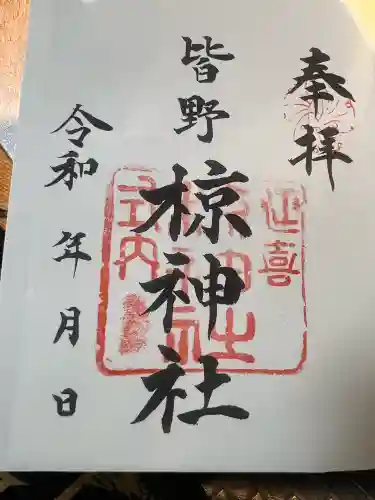 奉拝
皆野
椋神社
令和 年 月 日
延喜
式内
椋神社